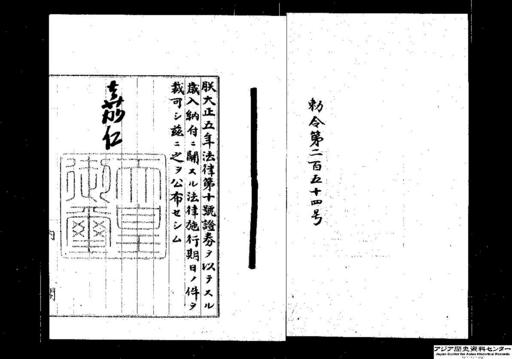 勅令第二百五十四号
朕大正五年法律第十號證券ヲ以テスル
歳入納付ニ關スル法律施行期日ノ件ヲ
裁可シ茲ニ之ヲ公布セシム
嘉仁
天皇御璽
内閣
アジア歴史資料センター
Japan Center for Asian Historical Records